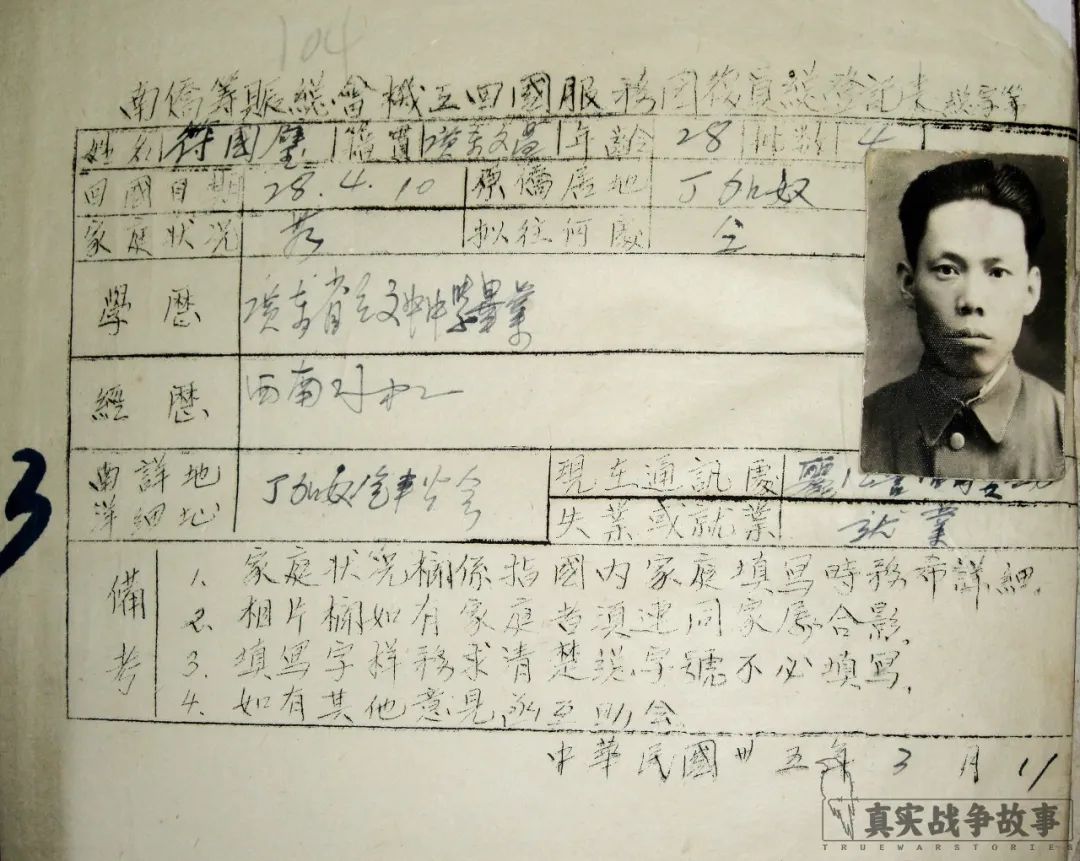 104
南僑籌賑總會機工回國服務團復員總登記表 總字第
姓名 符國璧 籍貫 廣東文昌 年齡 28 批別 4
回國日期 28.4.10 原僑居地 丁加奴
家庭狀况 拟往何處 仝
學歷 廣東省立文
經歷 西南
南洋詳細地址 丁加奴汽車公會 現在通訊處
失業或就業 就業
備考
1. 家庭狀况欄係指國内家庭填寫時務希詳細.
2. 相片欄如有家庭者須連同家属合影.
3. 填寫字样務求清楚總字號不必填寫.
4. 如有其他意見函互助会
中華民國卅五年3月11
3
真实战争故事
TRUEWARSTORIES